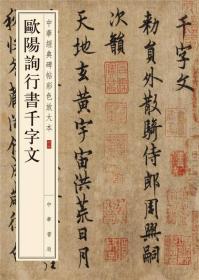 千字文
勑員外散騎侍郎周興嗣
次韻
天地玄黃宇宙洪荒日月
中華經典碑帖彩色放大本
歐陽詢行書千字文
中華書局